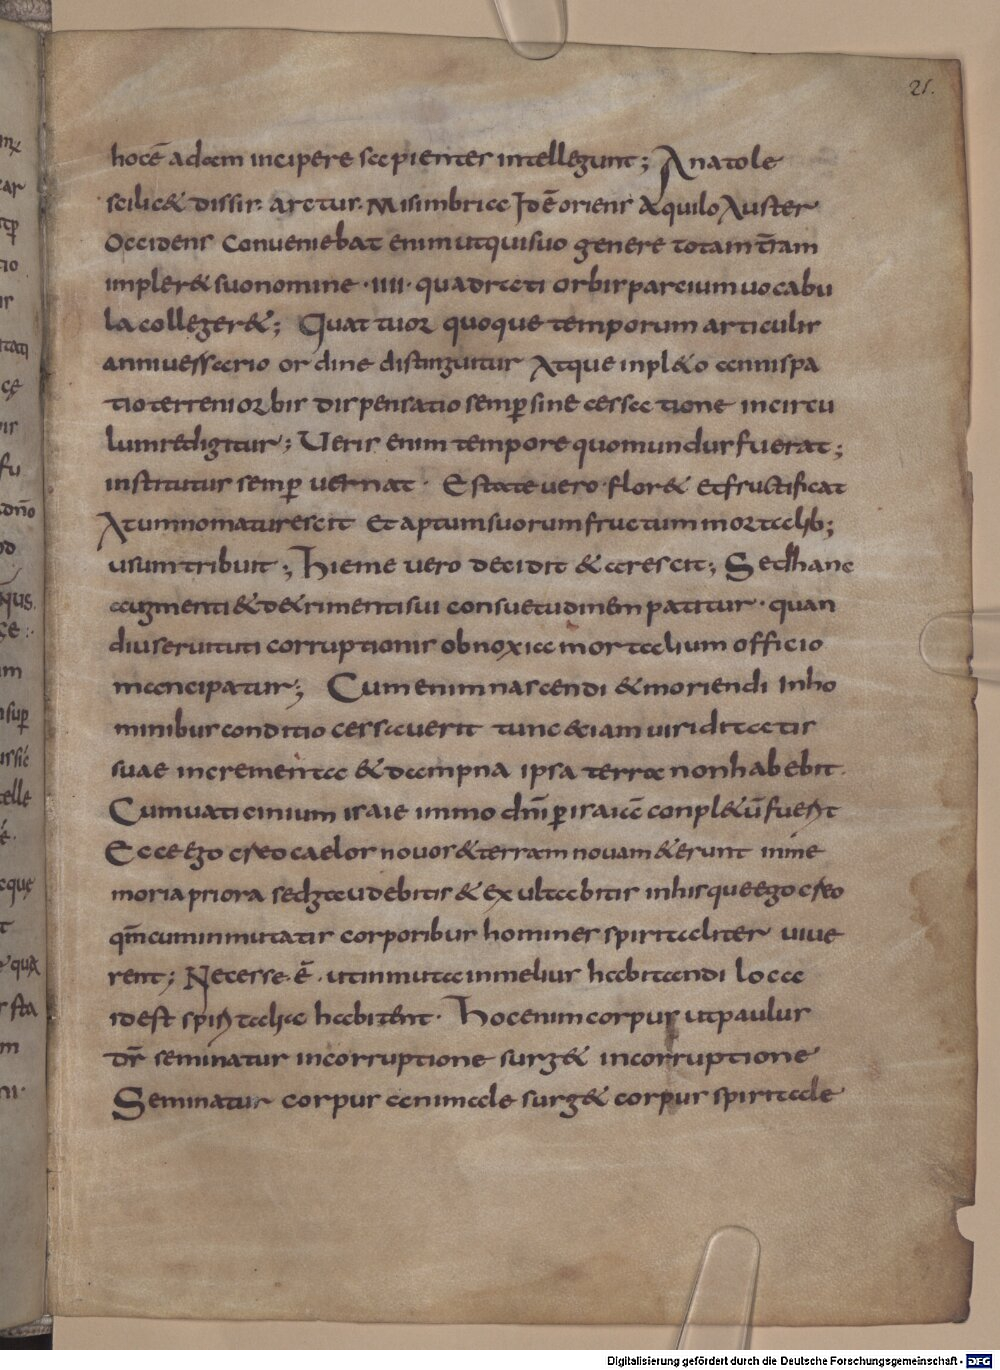 21.
hocē adam incipere sapienter intellegunt; Anatole
scilic& dissir· arctur· Misimbria Idē oriens Aquilo Auster
Occidens Conveniebat enim ut quisuo genere totam t̄ram
impler& suo nomine ·IIII· quadrati orbis partium uocabu
la colleger&; Quattuor quoque temporum articulis
anniuessario ordine distinguitur Atque inpl&o annispa
tio terreni orbis dispensatio semp̄ sine cessatione incircu
lum redigitur; Ueris enim tempore quomundus fuerat;
institutus semp̄ uernat· Estate uero flor& Et fructificat
Atumno maturescit Et aptum suorum fructum mortalib;
usum tribuit; Hieme uero decidit & arescit; Sed hanc
augmenti & d&rimenti sui consuetudinem patitur· quan
diu seruituti corruptionis obnoxia mortalium officio
mancipatur; Cum enim nascendi & moriendi Inho
minibus conditio cessauerit tunc &iam uiriditatis
suae incrementa & dampna ipsa terra non habebit·
Cum uaticinium isaie immo dn̄i p̄ isaiā conpl&ū fuerit
Ecce ego creo caelos nouos & terram nouam & erunt inme
moria priora sed gaudebitis & exultabitis in his que ego creo
qm̄ cum inmutatis corporibus homines spiritaliter uiue
rent; Necesse·ē· ut inmuta inmelius habitandi loca
id est spiritalia habitent· Hoc enim corpus ut paulus
dr̄ seminatur incorruptione surg& incorruptione
Seminatur corpus animale surg& corpus spiritale
Digitalisierung gefördert durch die Deutsche Forschungsgemeinschaft - DFG